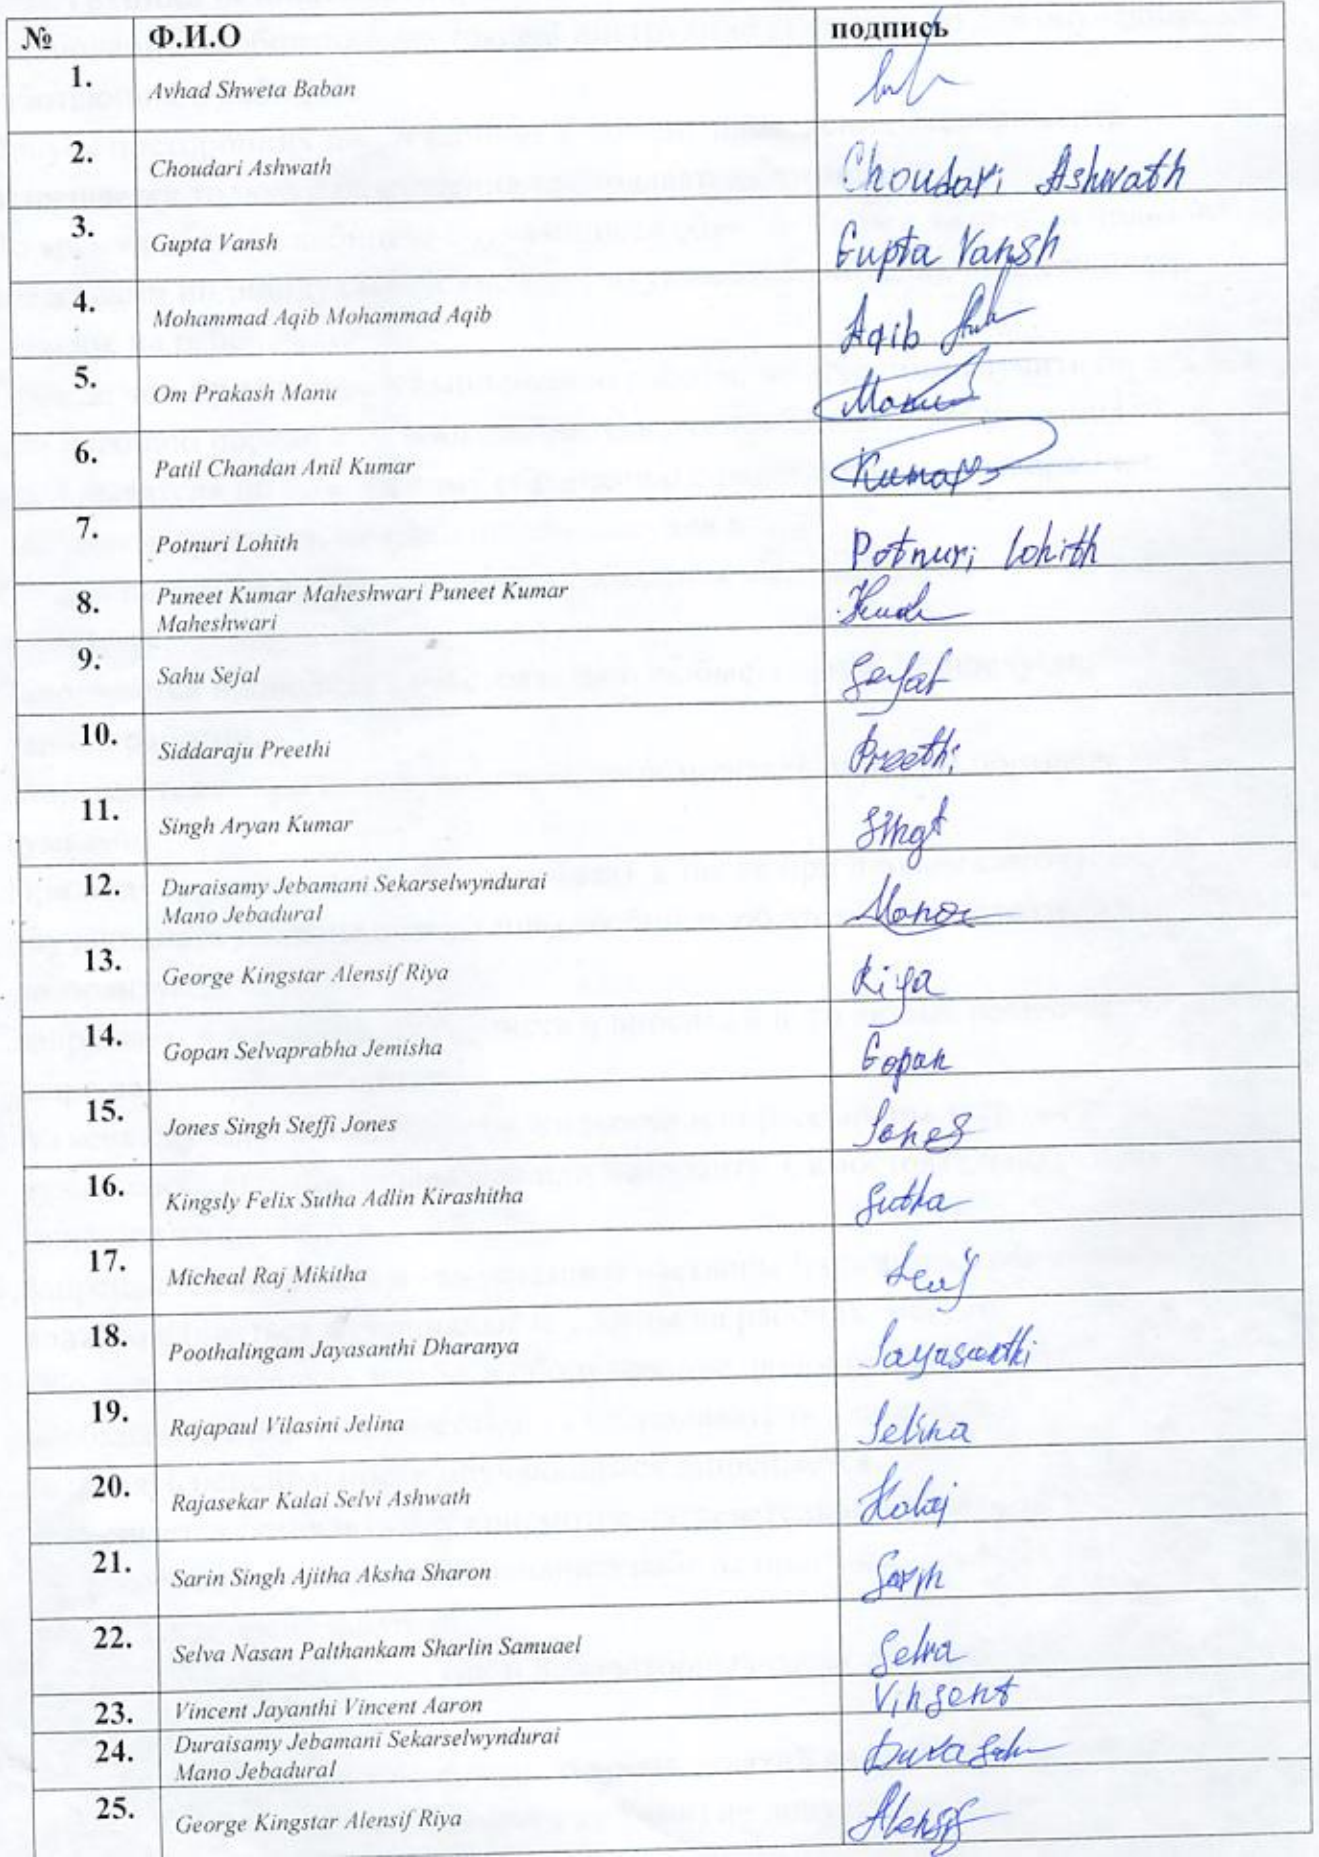 № Ф.И.О подпись
1. Avhad Shweta Baban
2. Choudari Ashwath Choudari Ashwath
3. Gupta Vansh Gupta Vansh
4. Mohammad Aqib Mohammad Aqib Aqib
5. Om Prakash Manu Manu
6. Patil Chandan Anil Kumar Kumar
7. Potnuri Lohith Potnuri Lohith
8. Puneet Kumar Maheshwari Puneet Kumar
Maheshwari
9. Sahu Sejal
10. Siddaraju Preethi Preethi
11. Singh Aryan Kumar
12. Duraisamy Jebamani Sekarselwyndurai
Mano Jebadural
13. George Kingstar Alensif Riya Riya
14. Gopan Selvaprabha Jemisha Gopan
15. Jones Singh Steffi Jones Jones
16. Kingsly Felix Sutha Adlin Kirashitha Sutha
17. Micheal Raj Mikitha
18. Poothalingam Jayasanthi Dharanya Jayasanthi
19. Rajapaul Vilasini Jelina Jelina
20. Rajasekar Kalai Selvi Ashwath
21. Sarin Singh Ajitha Aksha Sharon
22. Selva Nasan Palthankam Sharlin Samuael Selva
23. Vincent Jayanthi Vincent Aaron Vinsent
24. Duraisamy Jebamani Sekarselwyndurai
Mano Jebadural
25. George Kingstar Alensif Riya Alensif